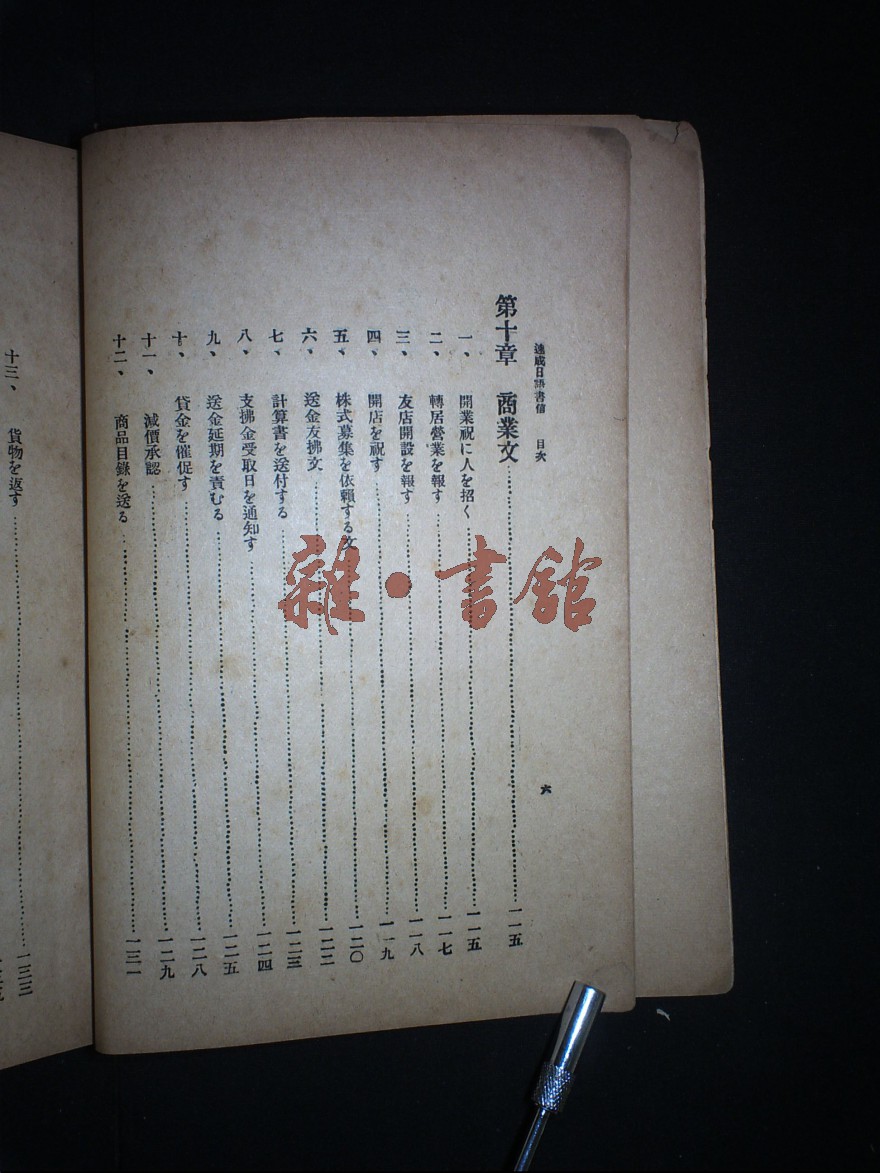 速成日語書信 目次 六
第十章 商業文 一一五
一、 開業祝に人を招く 一一五
二、 轉居營業を報す 一一七
三、 友店開設を報す 一一八
四、 開店を祝す 一一九
五、 株式募集を依賴する文 一二〇
六、 送金支拂文 一二二
七、 計算書を送付する 一二三
八、 支拂金受取日を通知す 一二四
九、 送金延期を責むる 一二五
十、 貸金を催促す 一二八
十一、 減價承認 一二九
十二、 商品目錄を送る 一三一
十三、 貨物を返す 一三三
雜·書館